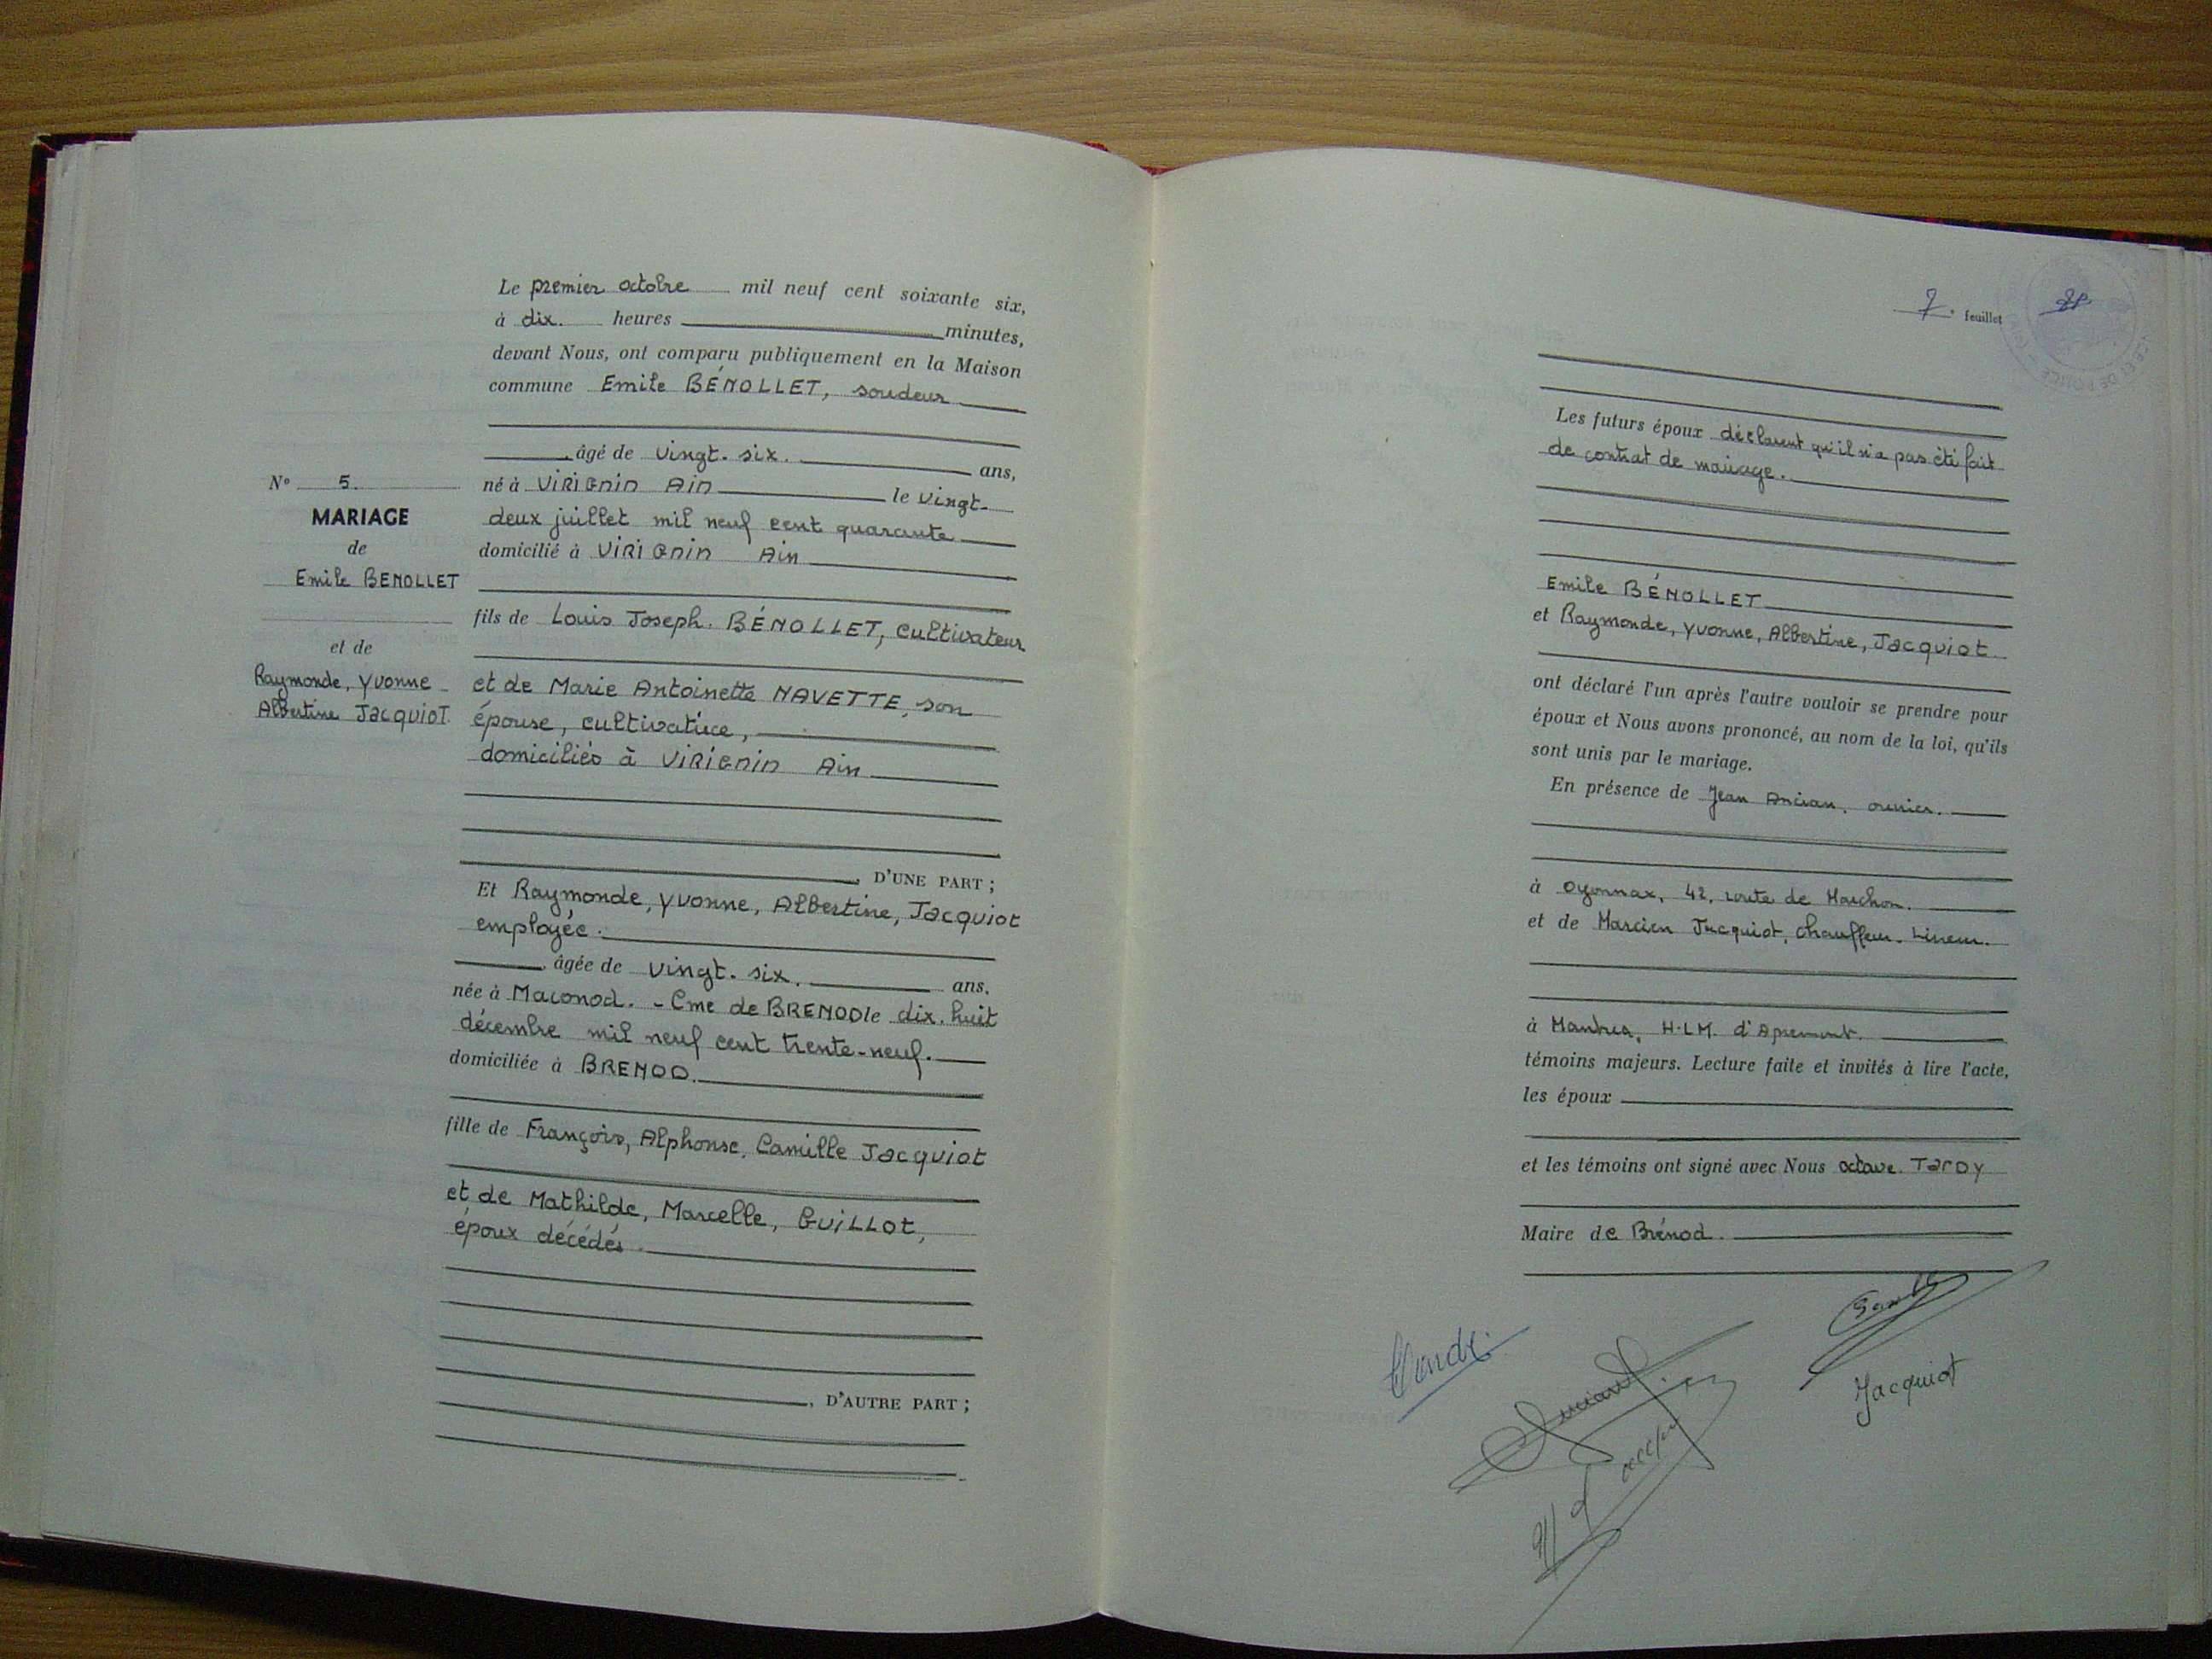 Le premier octobre mil neuf cent soixante six,
à dix. heures minutes,
devant Nous, ont comparu publiquement en la Maison
commune Emile BÉNOLLET, soudeur
âgé de vingt-six. ans,
né à VIRIGNIN Ain le vingt-
deux juillet mil neuf cent quarante
domicilié à VIRIGNIN Ain
N° 5.
MARIAGE
de
Emile BENOLLET
et de
Raymonde, Yvonne
Albertine JACQUIOT.
fils de Louis Joseph. BÉNOLLET, cultivateur
et de Marie Antoinette NAVETTE, son
épouse, cultivatrice,
domiciliés à VIRIGNIN Ain
, D'UNE PART ;
Et Raymonde, Yvonne, Albertine, Jacquiot
employée.
âgée de vingt-six. ans.
née à Maconod. - Cme de BRENOD le dix-huit
décembre mil neuf cent trente-neuf.
domiciliée à BRENOD.
fille de François, Alphonse, Camille Jacquiot
et de Mathilde, Marcelle, GUILLOT,
époux décédés.
, D'AUTRE PART ;
7e feuillet
Les futurs époux déclarent qu'il n'a pas été fait
de contrat de mariage.
Emile BÉNOLLET
et Raymonde, Yvonne, Albertine, Jacquiot
ont déclaré l'un après l'autre vouloir se prendre pour
époux et Nous avons prononcé, au nom de la loi, qu'ils
sont unis par le mariage.
En présence de Jean Ancian, ouvrier.
à Oyonnax, 42, route de Marchon.
et de Marcien Jacquiot, chauffeur-livreur.
à Nantua, H.L.M. d'Apremont.
témoins majeurs. Lecture faite et invités à lire l'acte,
les époux
et les témoins ont signé avec Nous Octave. Tardy
Maire de Brénod.
Jacquiot